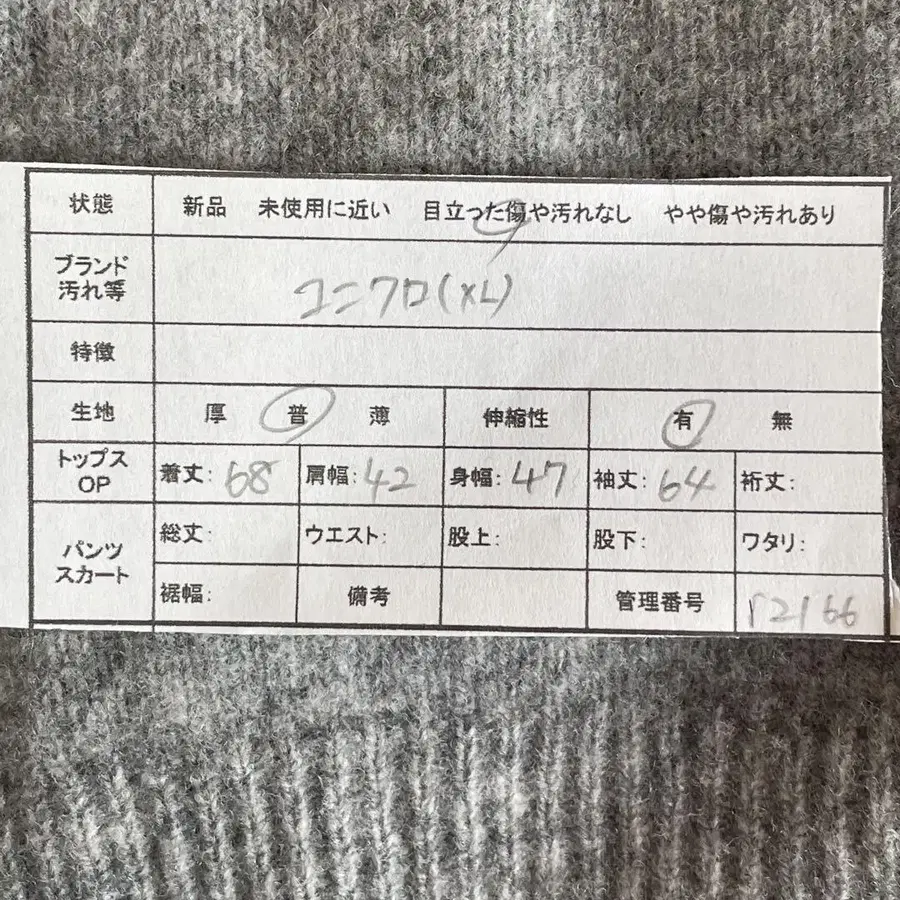 状態 新品 未使用に近い 目立った傷や汚れなし やや傷や汚れあり
ブランド
汚れ等
ユニクロ(XL)
特徴
生地 厚 普 薄 伸縮性 有 無
トップス
OP
着丈: 68 肩幅: 42 身幅: 47 袖丈: 64 裄丈:
パンツ
スカート
総丈: ウエスト: 股上: 股下: ワタリ:
裾幅: 備考 管理番号 r2166